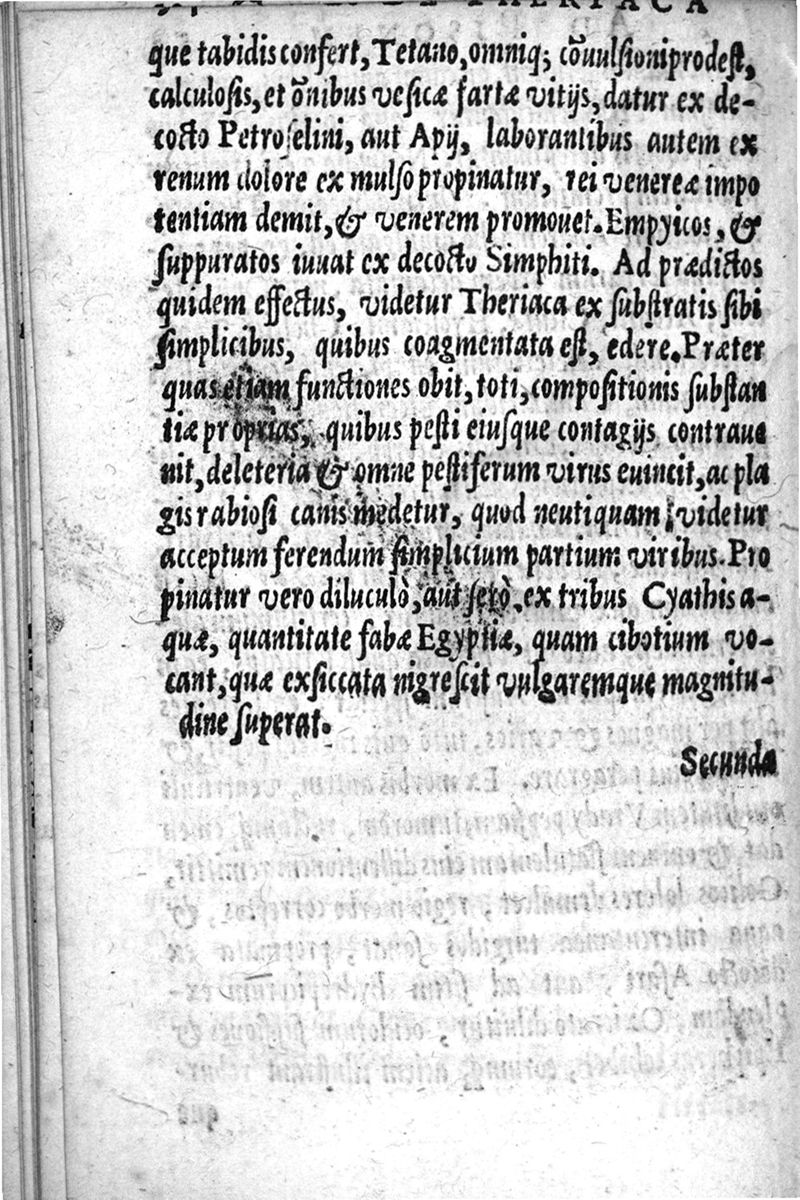 DE THERIACA
que tabidis confert, Tetano, omniq; cōuulsioni prodest,
calculosis, et ōnibus vesicæ fartæ vitijs, datur ex de-
cocto Petroselini, aut Apij, laborantibus autem ex
renum dolore ex mulso propinatur, rei venereæ impo
tentiam demit, & venerem promouet. Empyicos, &
suppuratos iuuat ex decocto Simphiti. Ad prædictos
quidem effectus, videtur Theriaca ex substratis sibi
simplicibus, quibus coagmentata est, edere. Præter
quas etiam functiones obit, toti, compositionis substan
tiæ proprias, quibus pesti eiusque contagijs contraue
nit, deleteria & omne pestiferum virus euincit, ac pla
gis rabiosi canis medetur, quod neutiquam videtur
acceptum ferendum simplicium partium viribus. Pro
pinatur vero diluculò, aut serò, ex tribus Cyathis a-
quæ, quantitate fabæ Egyptiæ, quam cibotium vo-
cant, quæ exsiccata nigrescit vulgaremque magnitu-
dine superat.
Secunda